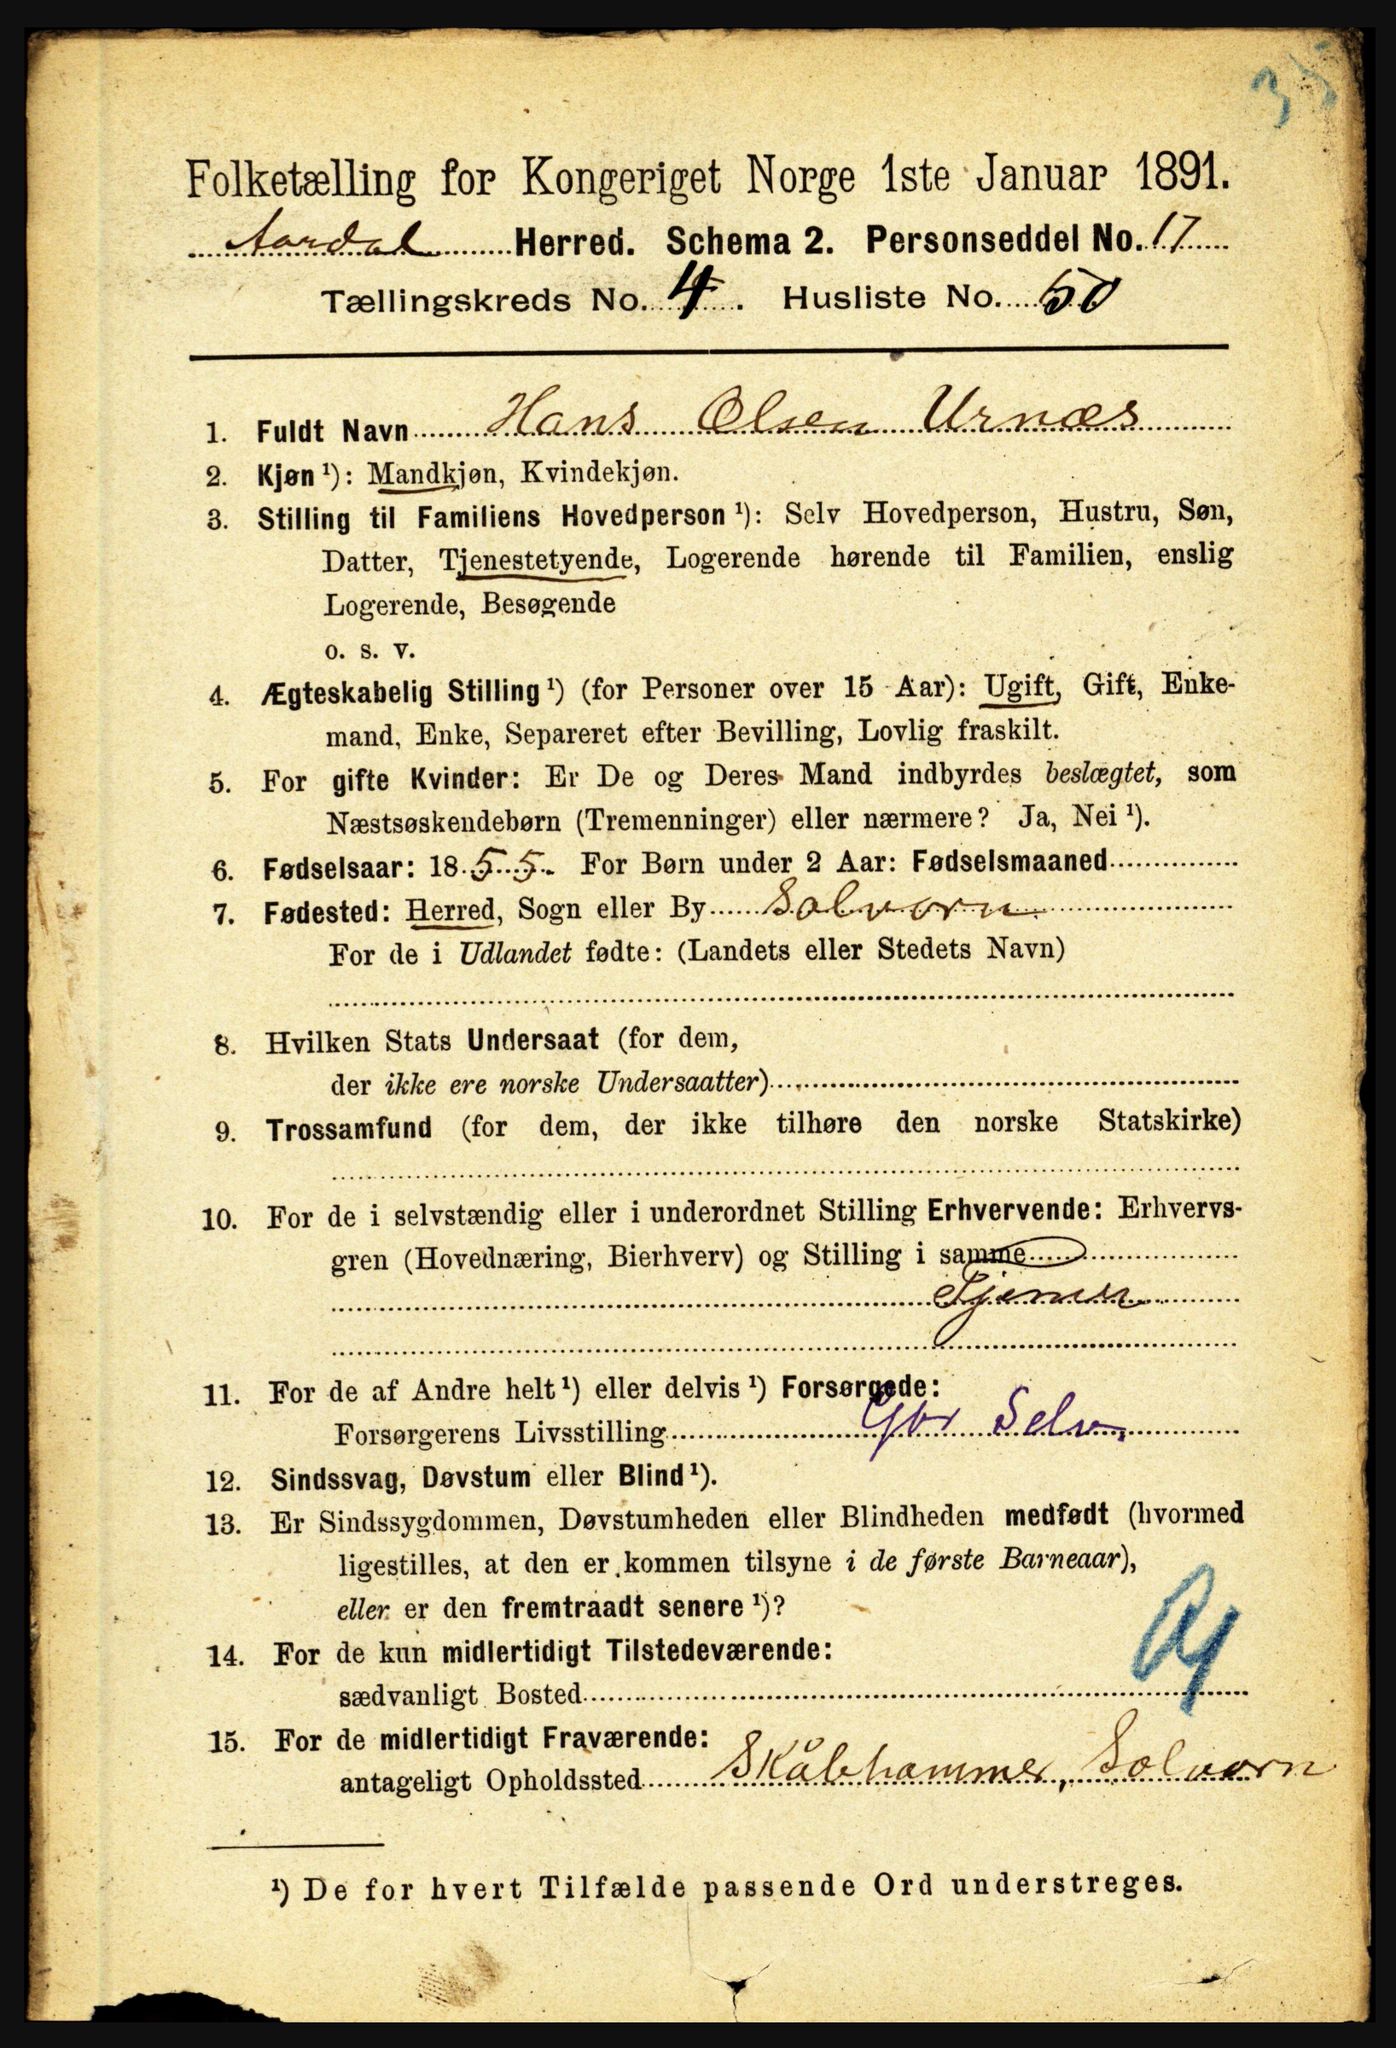 35
Folketælling for Kongeriget Norge 1ste Januar 1891.
Aardal Herred. Schema 2. Personseddel No. 17
Tællingskreds No. 4. Husliste No. 50
1. Fuldt Navn Hans Olsen Urnæs
2. Kjøn ¹): Mandkjøn, Kvindekjøn.
3. Stilling til Familiens Hovedperson ¹): Selv Hovedperson, Hustru, Søn,
Datter, Tjenestetyende, Logerende hørende til Familien, enslig
Logerende, Besøgende
o. s. v.
4. Ægteskabelig Stilling ¹) (for Personer over 15 Aar): Ugift, Gift, Enke-
mand, Enke, Separeret efter Bevilling, Lovlig fraskilt.
5. For gifte Kvinder: Er De og Deres Mand indbyrdes beslægtet, som
Næstsøskendebørn (Tremenninger) eller nærmere? Ja, Nei ¹).
6. Fødselsaar: 1855. For Børn under 2 Aar: Fødselsmaaned
7. Fødested: Herred, Sogn eller By Solvorn
For de i Udlandet fødte: (Landets eller Stedets Navn)
8. Hvilken Stats Undersaat (for dem,
der ikke ere norske Undersaatter)
9. Trossamfund (for dem, der ikke tilhøre den norske Statskirke)
10. For de i selvstændig eller i underordnet Stilling Erhvervende: Erhvervs-
gren (Hovednæring, Bierhverv) og Stilling i samme
Tjener
11. For de af Andre helt ¹) eller delvis ¹) Forsørgede:
Forsørgerens Livsstilling Gbr Selv.
12. Sindssvag, Døvstum eller Blind ¹).
13. Er Sindssygdommen, Døvstumheden eller Blindheden medfødt (hvormed
ligestilles, at den er kommen tilsyne i de første Barneaar),
eller er den fremtraadt senere ¹)?
14. For de kun midlertidigt Tilstedeværende:
sædvanligt Bosted
15. For de midlertidigt Fraværende:
antageligt Opholdssted Solvorn
¹) De for hvert Tilfælde passende Ord understreges.